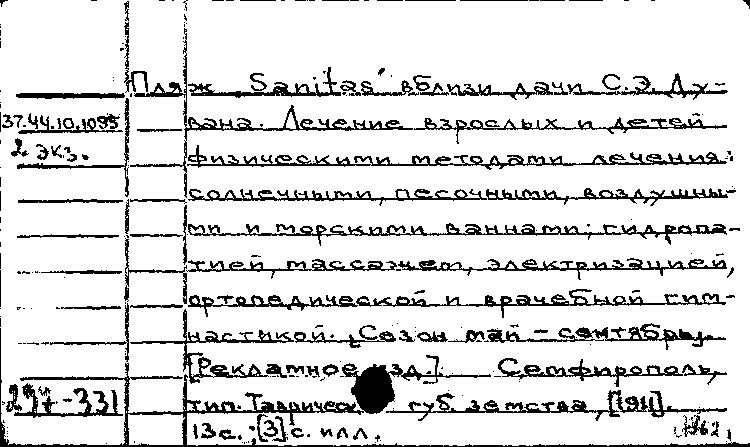 Пляж „Sanitas" вблизи дачи С.Э. Ду-
37.44.10.1095
вана. Лечение взрослых и детей
2 экз.
физическими методами лечения:
солнечными, песочными, воздушны-
ми и морскими ваннами; гидропа-
тией, массажем, электризацией,
ортопедической и врачебной гим-
настикой. [Сезон май - сентябрь].
[Рекламное изд.]. Семфирополь,
297-331
тип. Тавричес губ. земства, [1911].
13с.; [3] с. илл.